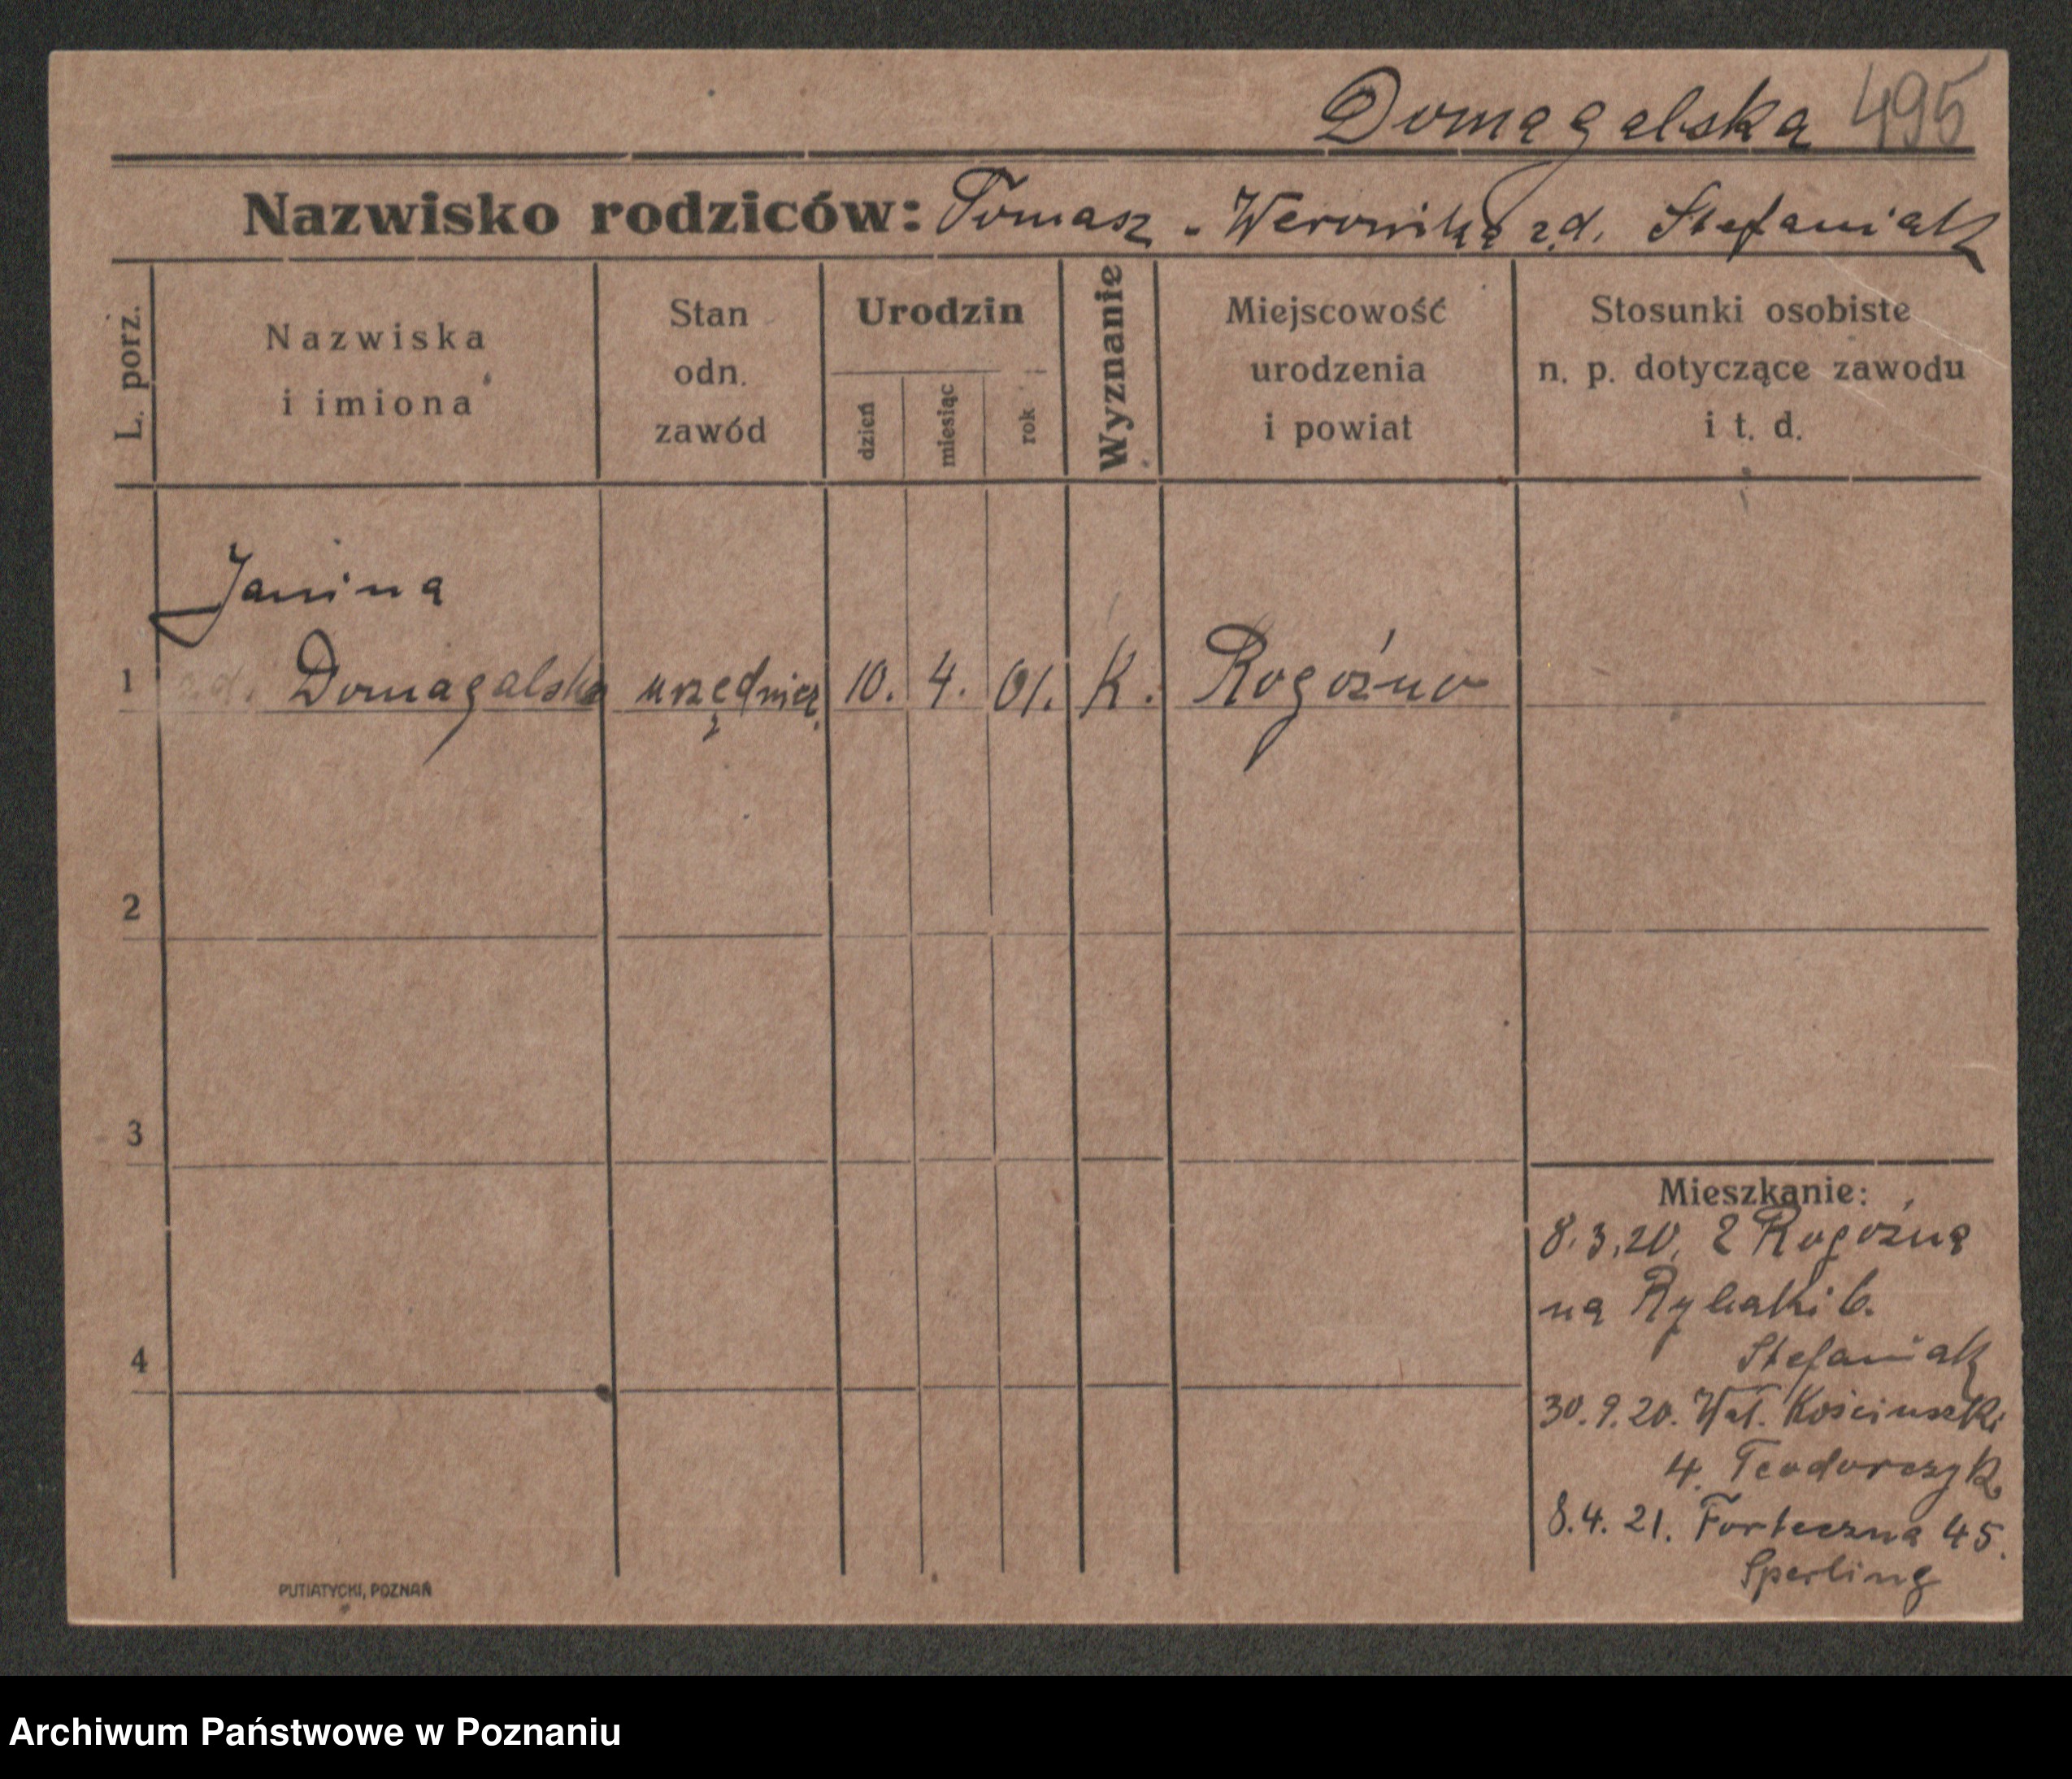 Domagalska 495
Nazwisko rodziców: Tomasz - Weronika z d. Stefaniak
L. porz.
Nazwiska
i imiona
Stan
odn.
zawód
Urodzin
dzień
miesiąc
rok
Wyznanie
Miejscowość
urodzenia
i powiat
Stosunki osobiste
n. p. dotyczące zawodu
i t. d.
Janina
1 z.d. Domagalska urzędnicz. 10. 4. 01. K. Rogoźno
2
3
4
Mieszkanie:
8.3.20. z Rogoźna
na Rybaki 6.
Stefaniak
30.9.20. Wał. Kościuszki
4. Teodorczyk
8.4.21. Forteczna 45.
Sperling
PUTIATYCKI, POZNAŃ
Archiwum Państwowe w Poznaniu